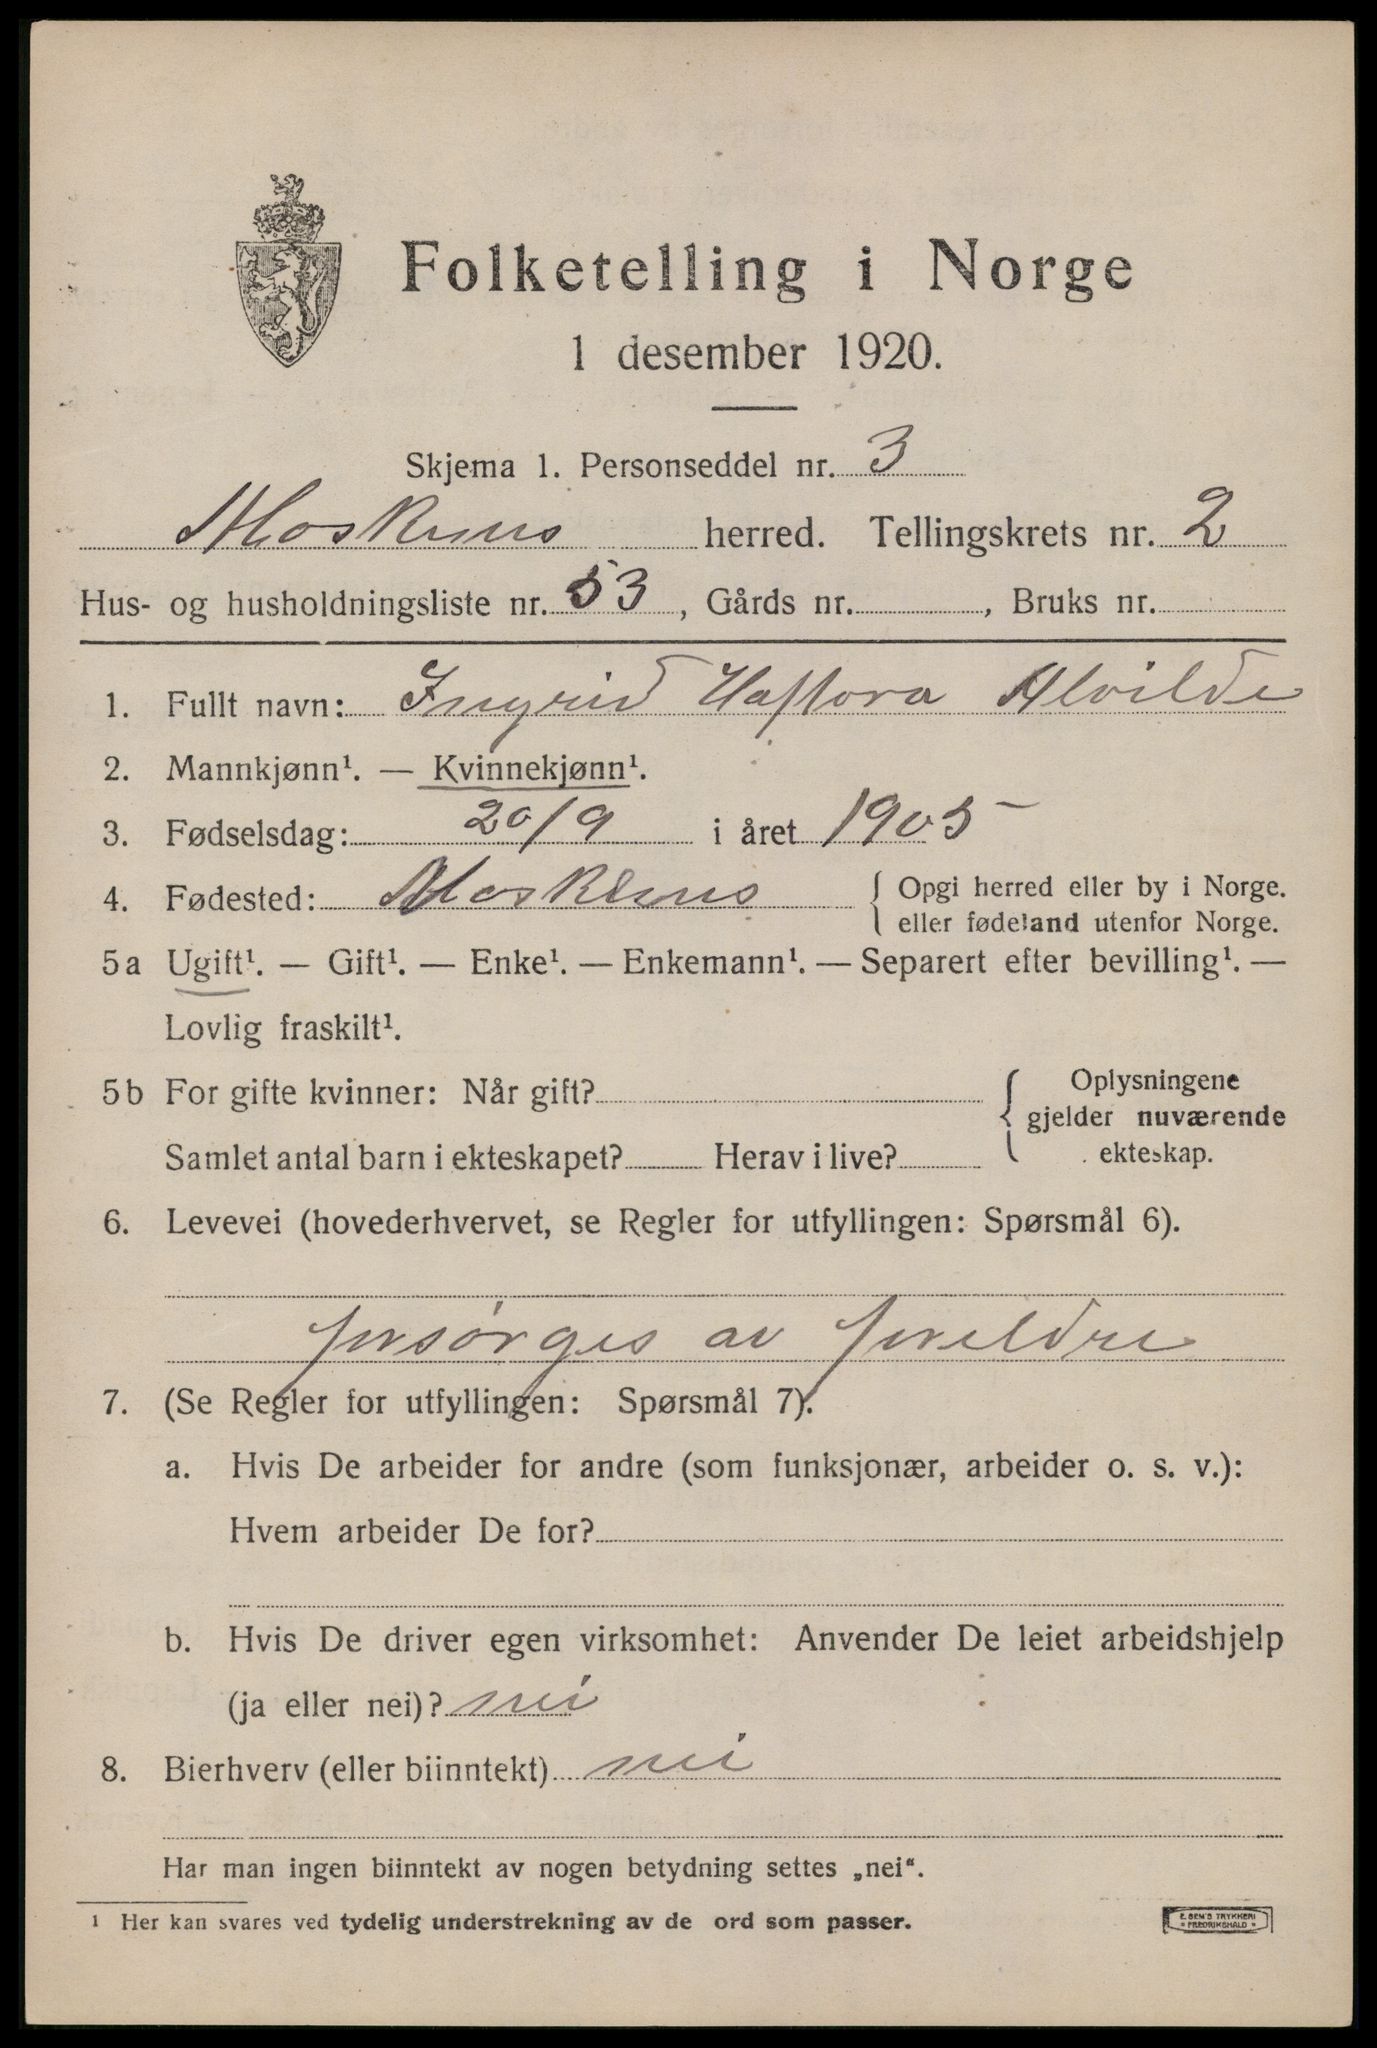 Folketelling i Norge
1 desember 1920.
Skjema 1. Personseddel nr. 3
Moskenes herred. Tellingskrets nr. 2
Hus- og husholdningsliste nr. 53, Gårds nr. , Bruks nr.
1. Fullt navn: Ingrid Haftora Alvilde
2. Mannkjønn¹. — Kvinnekjønn¹.
3. Fødselsdag: 20/9 i året 1905
4. Fødested: Moskenes { Opgi herred eller by i Norge.
eller fødeland utenfor Norge.
5 a Ugift¹. — Gift¹. — Enke¹. — Enkemann¹. — Separert efter bevilling¹. —
Lovlig fraskilt¹.
5 b For gifte kvinner: Når gift? { Oplysningene
gjelder nuværende
Samlet antal barn i ekteskapet? Herav i live? ekteskap.
6. Levevei (hovederhvervet, se Regler for utfyllingen: Spørsmål 6).
forsørges av foreldre
7. (Se Regler for utfyllingen: Spørsmål 7).
a. Hvis De arbeider for andre (som funksjonær, arbeider o. s. v.):
Hvem arbeider De for?
b. Hvis De driver egen virksomhet: Anvender De leiet arbeidshjelp
(ja eller nei)? nei
8. Bierhverv (eller biinntekt) nei
Har man ingen biinntekt av nogen betydning settes „nei“.
¹ Her kan svares ved tydelig understrekning av de ord som passer.
E. SEM'S TRYKKERI
FREDRIKSHALD